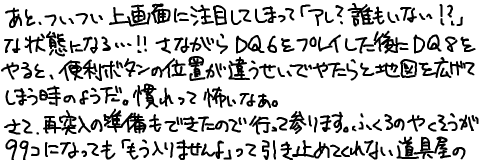 あと、ついつい上画面に注目してしまって「アレ?誰もいない!?」
な状態になる…!!さながらDQ6をプレイした後にDQ8を
やると、便利ボタンの位置が違うせいでやたらと地図を広げて
しまう時のようだ。慣れって怖いなぁ。
さて、再突入の準備もできたので行って参ります。ふくろのやくそうが
99コになっても「もう入りませんよ」って引き止めてくれない道具屋の